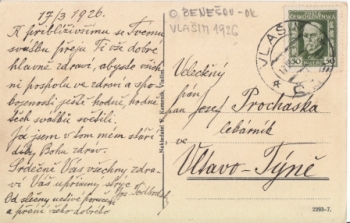 17/3 1926.
K přibliživšímu se Tvému
svátku přeju Ti vše dobré
hlavně zdraví, abyste všich-
ni pospolu ve zdraví a spo-
kojenosti ještě hodně, hodně
těch svátků světili.
Já jsem v tom mém stáří
díky Bohu zdráv.
Srdečně Vás všechny zdra-
ví Váš upřímný strýc
Od slečny uctivé poručení
a přání všeho dobrého
O BENEŠOV-OK
VLAŠIM 1926
VLAŠ
ČESKOSLOVENSKO
50 50
Velectěný
pán
pan Josef Prochaska
lekárník
ve
Vltavo-Týně
2993-7.